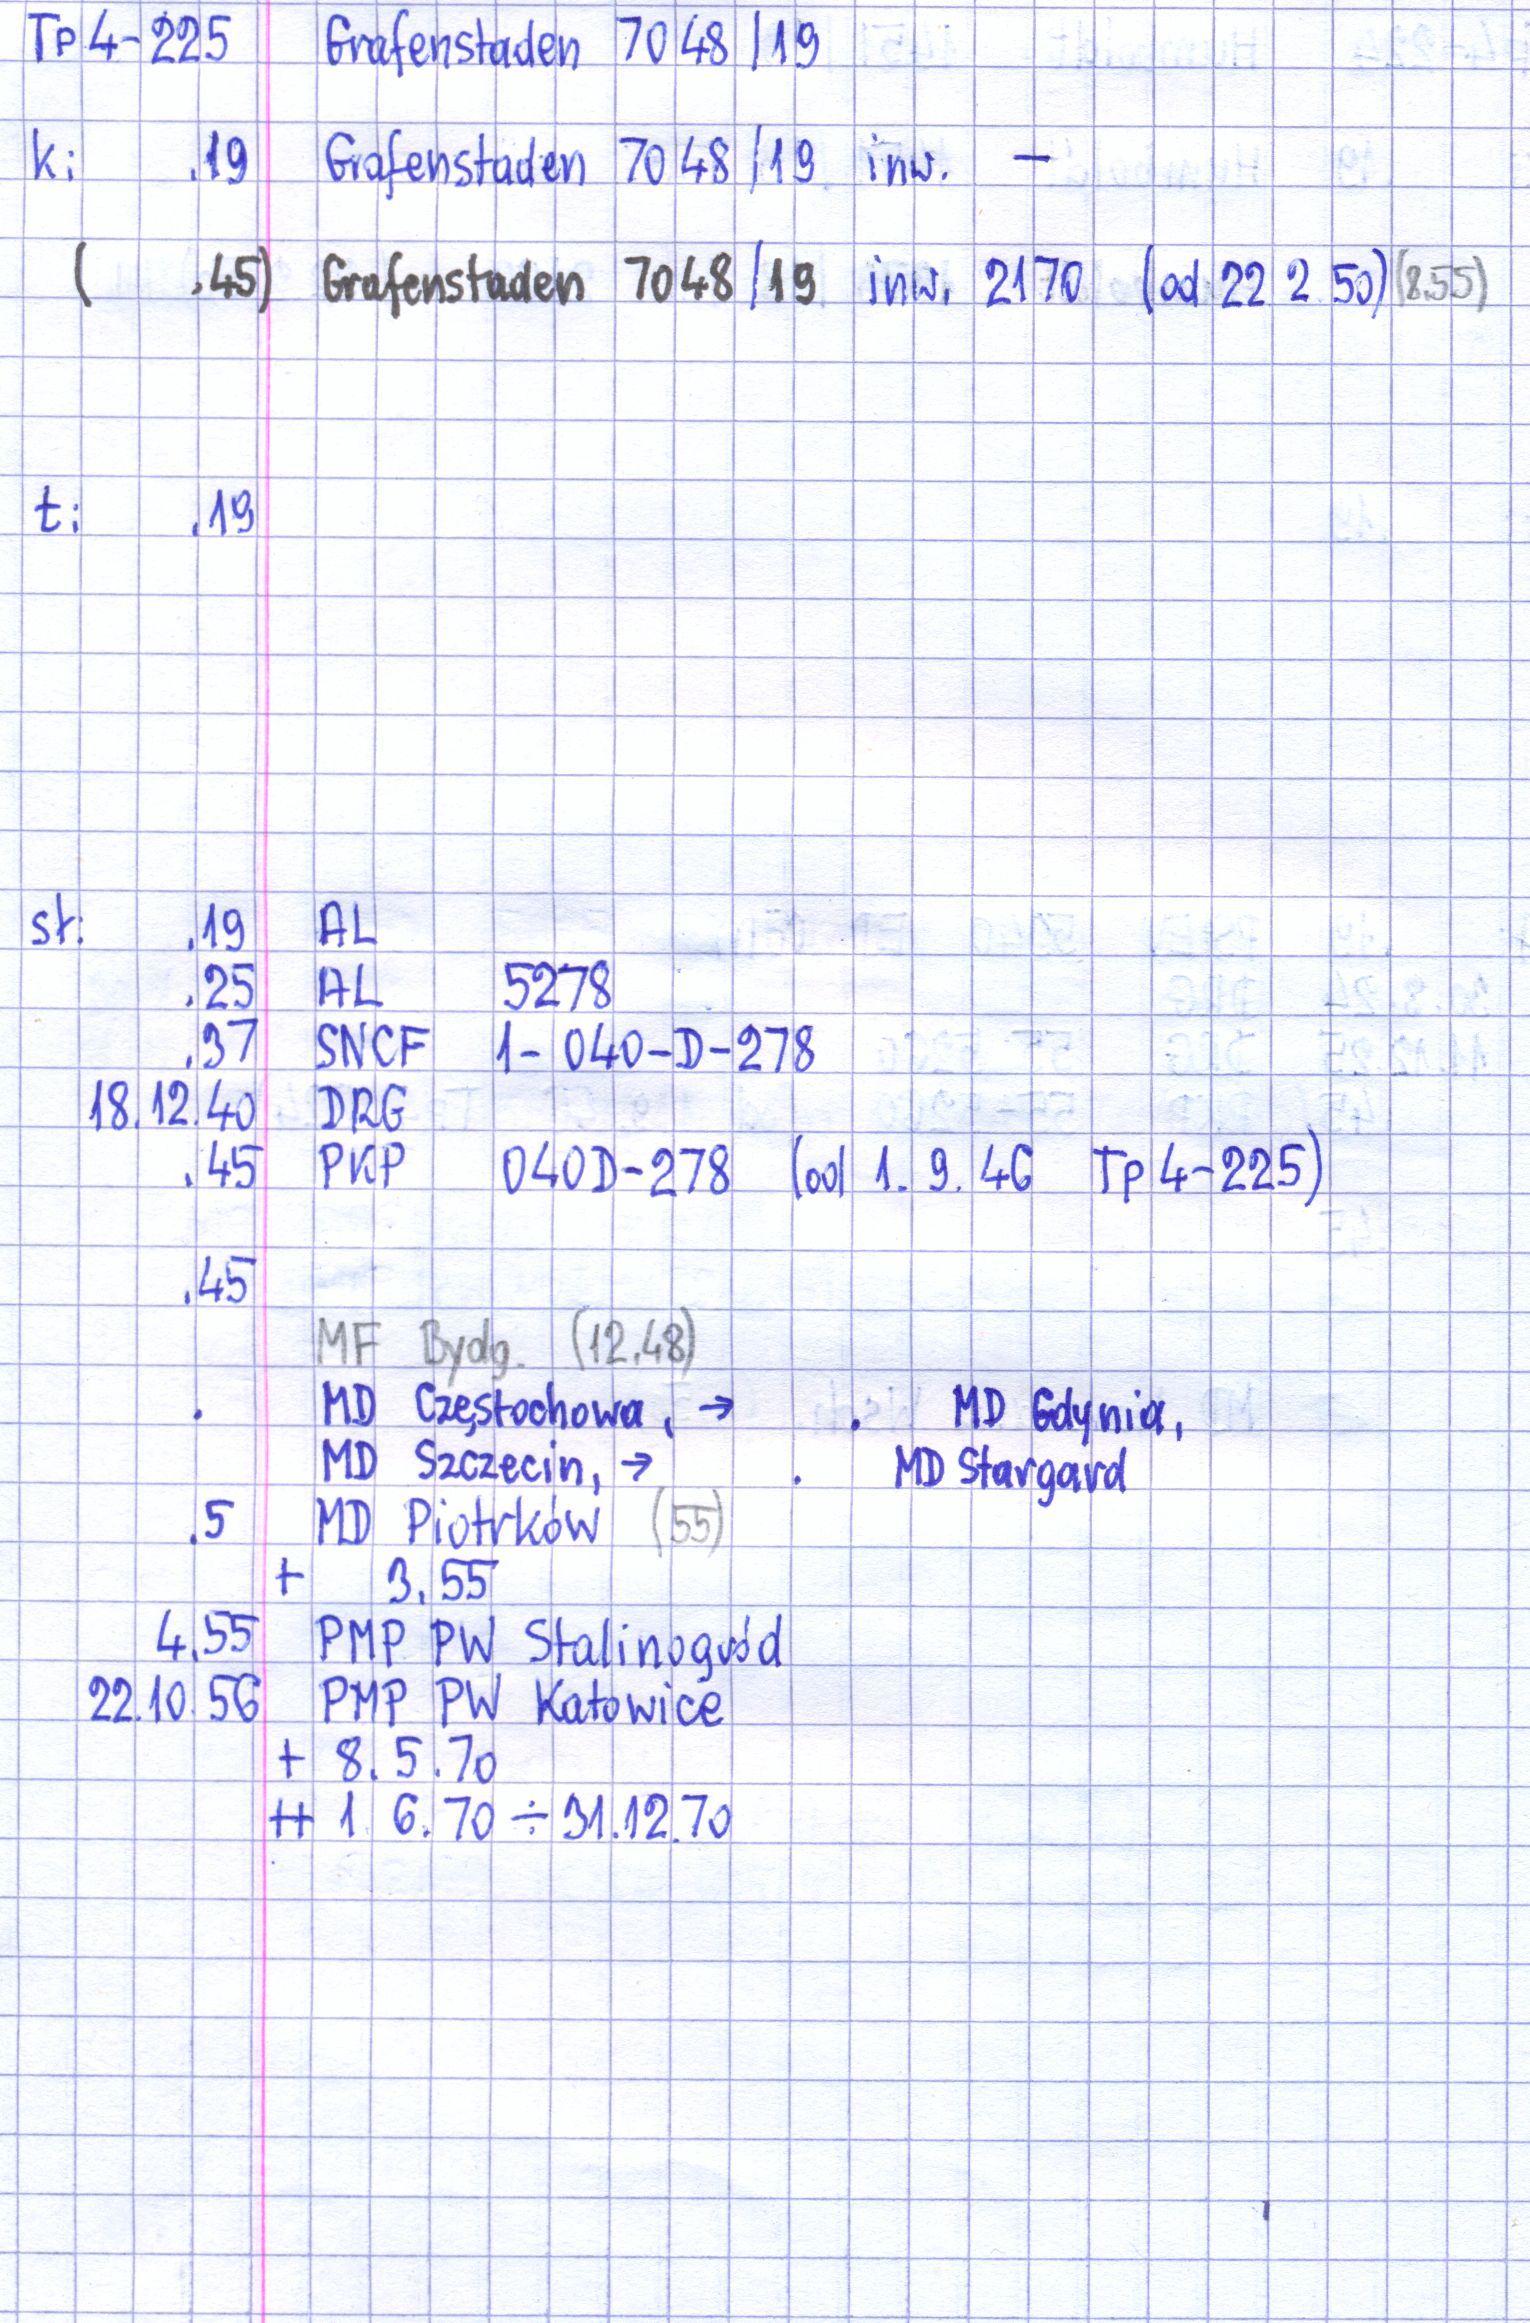 Tp 4-225 Grafenstaden 7048/19
k: .19 Grafenstaden 7048/19 inw. —
( .45) Grafenstaden 7048/19 inw. 2170 (od 22 2 50) (8.55)
t: .19
st: .19 AL
.25 AL 5278
.37 SNCF 1-040-D-278
18.12.40 DRG
.45 PKP 040D-278 (od 1.9.46 Tp 4-225)
.45
MF Bydg. (12.48)
. MD Częstochowa, → . MD Gdynia,
MD Szczecin, → . MD Stargard
.5 MD Piotrków (55)
+ 3.55
4.55 PMP PW Stalinogród
22.10.56 PMP PW Katowice
+ 8.5.70
++ 1 6.70 ÷ 31.12.70